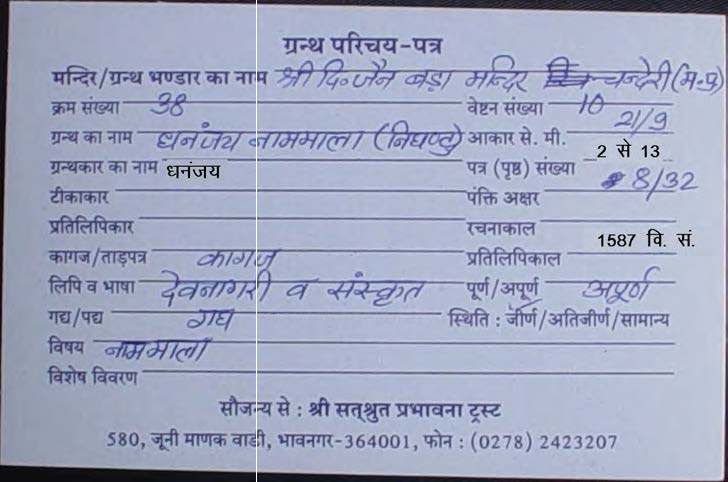 ग्रन्थ परिचय-पत्र
मन्दिर/ग्रन्थ भण्डार का नाम श्री दि. जैन बड़ा मन्दिर चन्देरी (म.प्र)
क्रम संख्या 38 वेष्टन संख्या 10
ग्रन्थ का नाम धनंजय नाममाला (निघण्टु) आकार से. मी. 21/9
ग्रन्थकार का नाम धनंजय पत्र (पृष्ठ) संख्या 2 से 13
टीकाकार पंक्ति अक्षर 8/32
प्रतिलिपिकार रचनाकाल
कागज/ताड़पत्र कागज प्रतिलिपिकाल 1587 वि. सं.
लिपि व भाषा देवनागरी व संस्कृत पूर्ण/अपूर्ण अपूर्ण
गद्य/पद्य गद्य स्थिति : जीर्ण/अतिजीर्ण/सामान्य
विषय नाममाला
विशेष विवरण
सौजन्य से : श्री सत्श्रुत प्रभावना ट्रस्ट
580, जूनी माणक वाडी, भावनगर-364001, फोन : (0278) 2423207